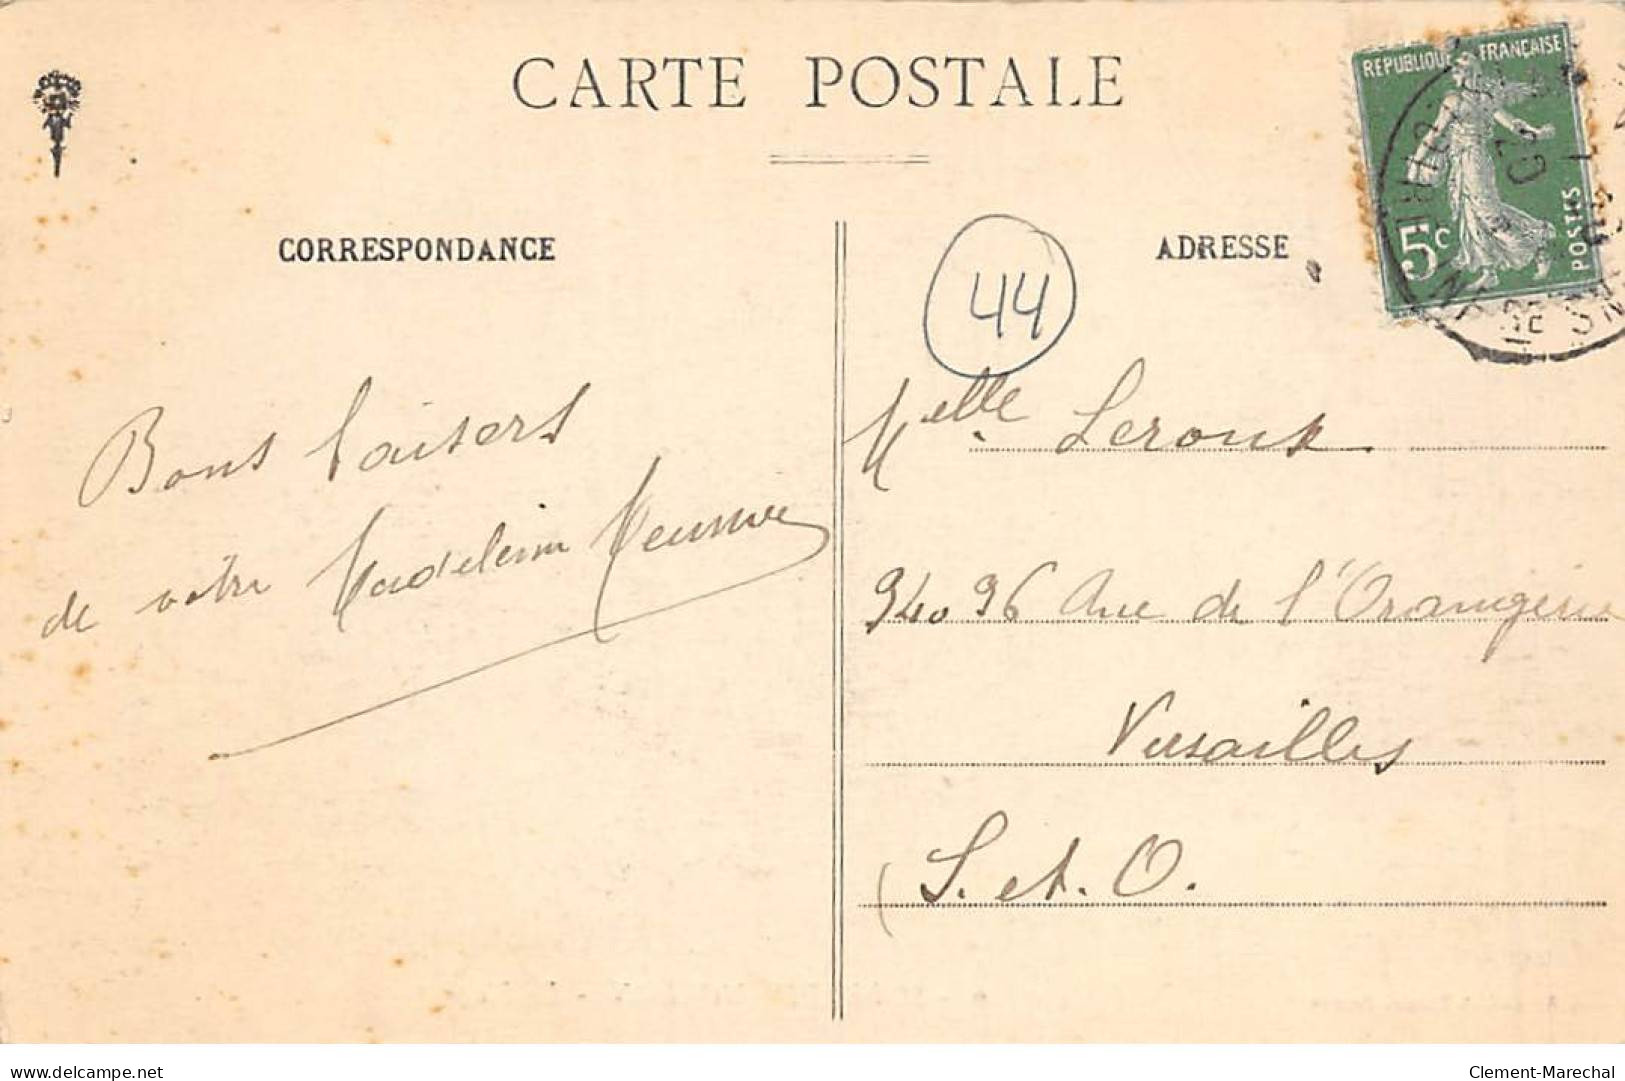 CARTE POSTALE
CORRESPONDANCE
ADRESSE
REPUBLIQUE FRANÇAISE
5c
POSTES
44
Melle Leroux
94 96 Ave de l'Orangerie
Versailles
S. et. O.
Bons baisers
de votre Madeleine Meunier
delcampe.net
Clement-Marechal